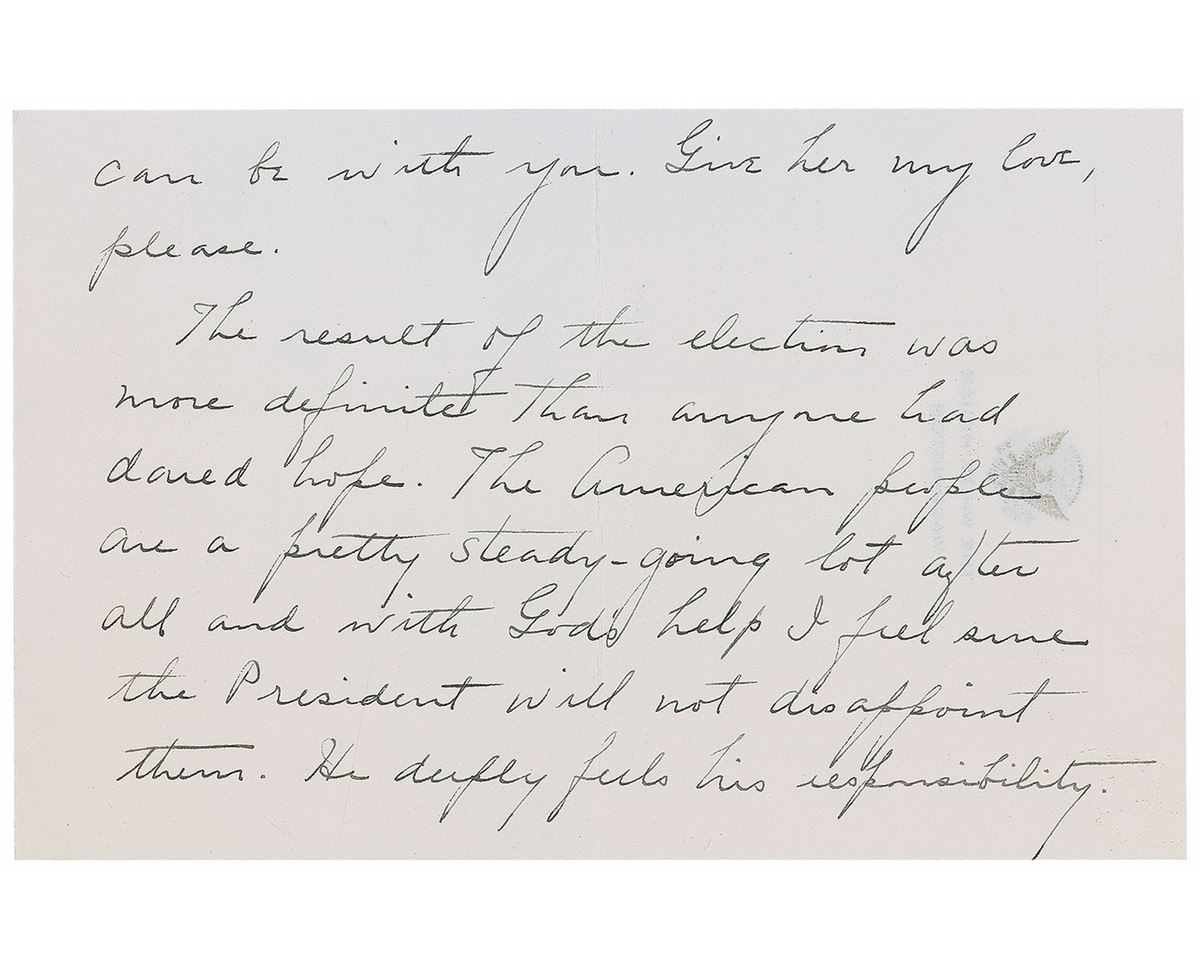 can be with you. Give her my love,
please.
The result of the election was
more definite than anyone had
dared hope. The American people
are a pretty steady-going lot after
all and with God's help I feel sure
the President will not disappoint
them. He deeply feels his responsibility.